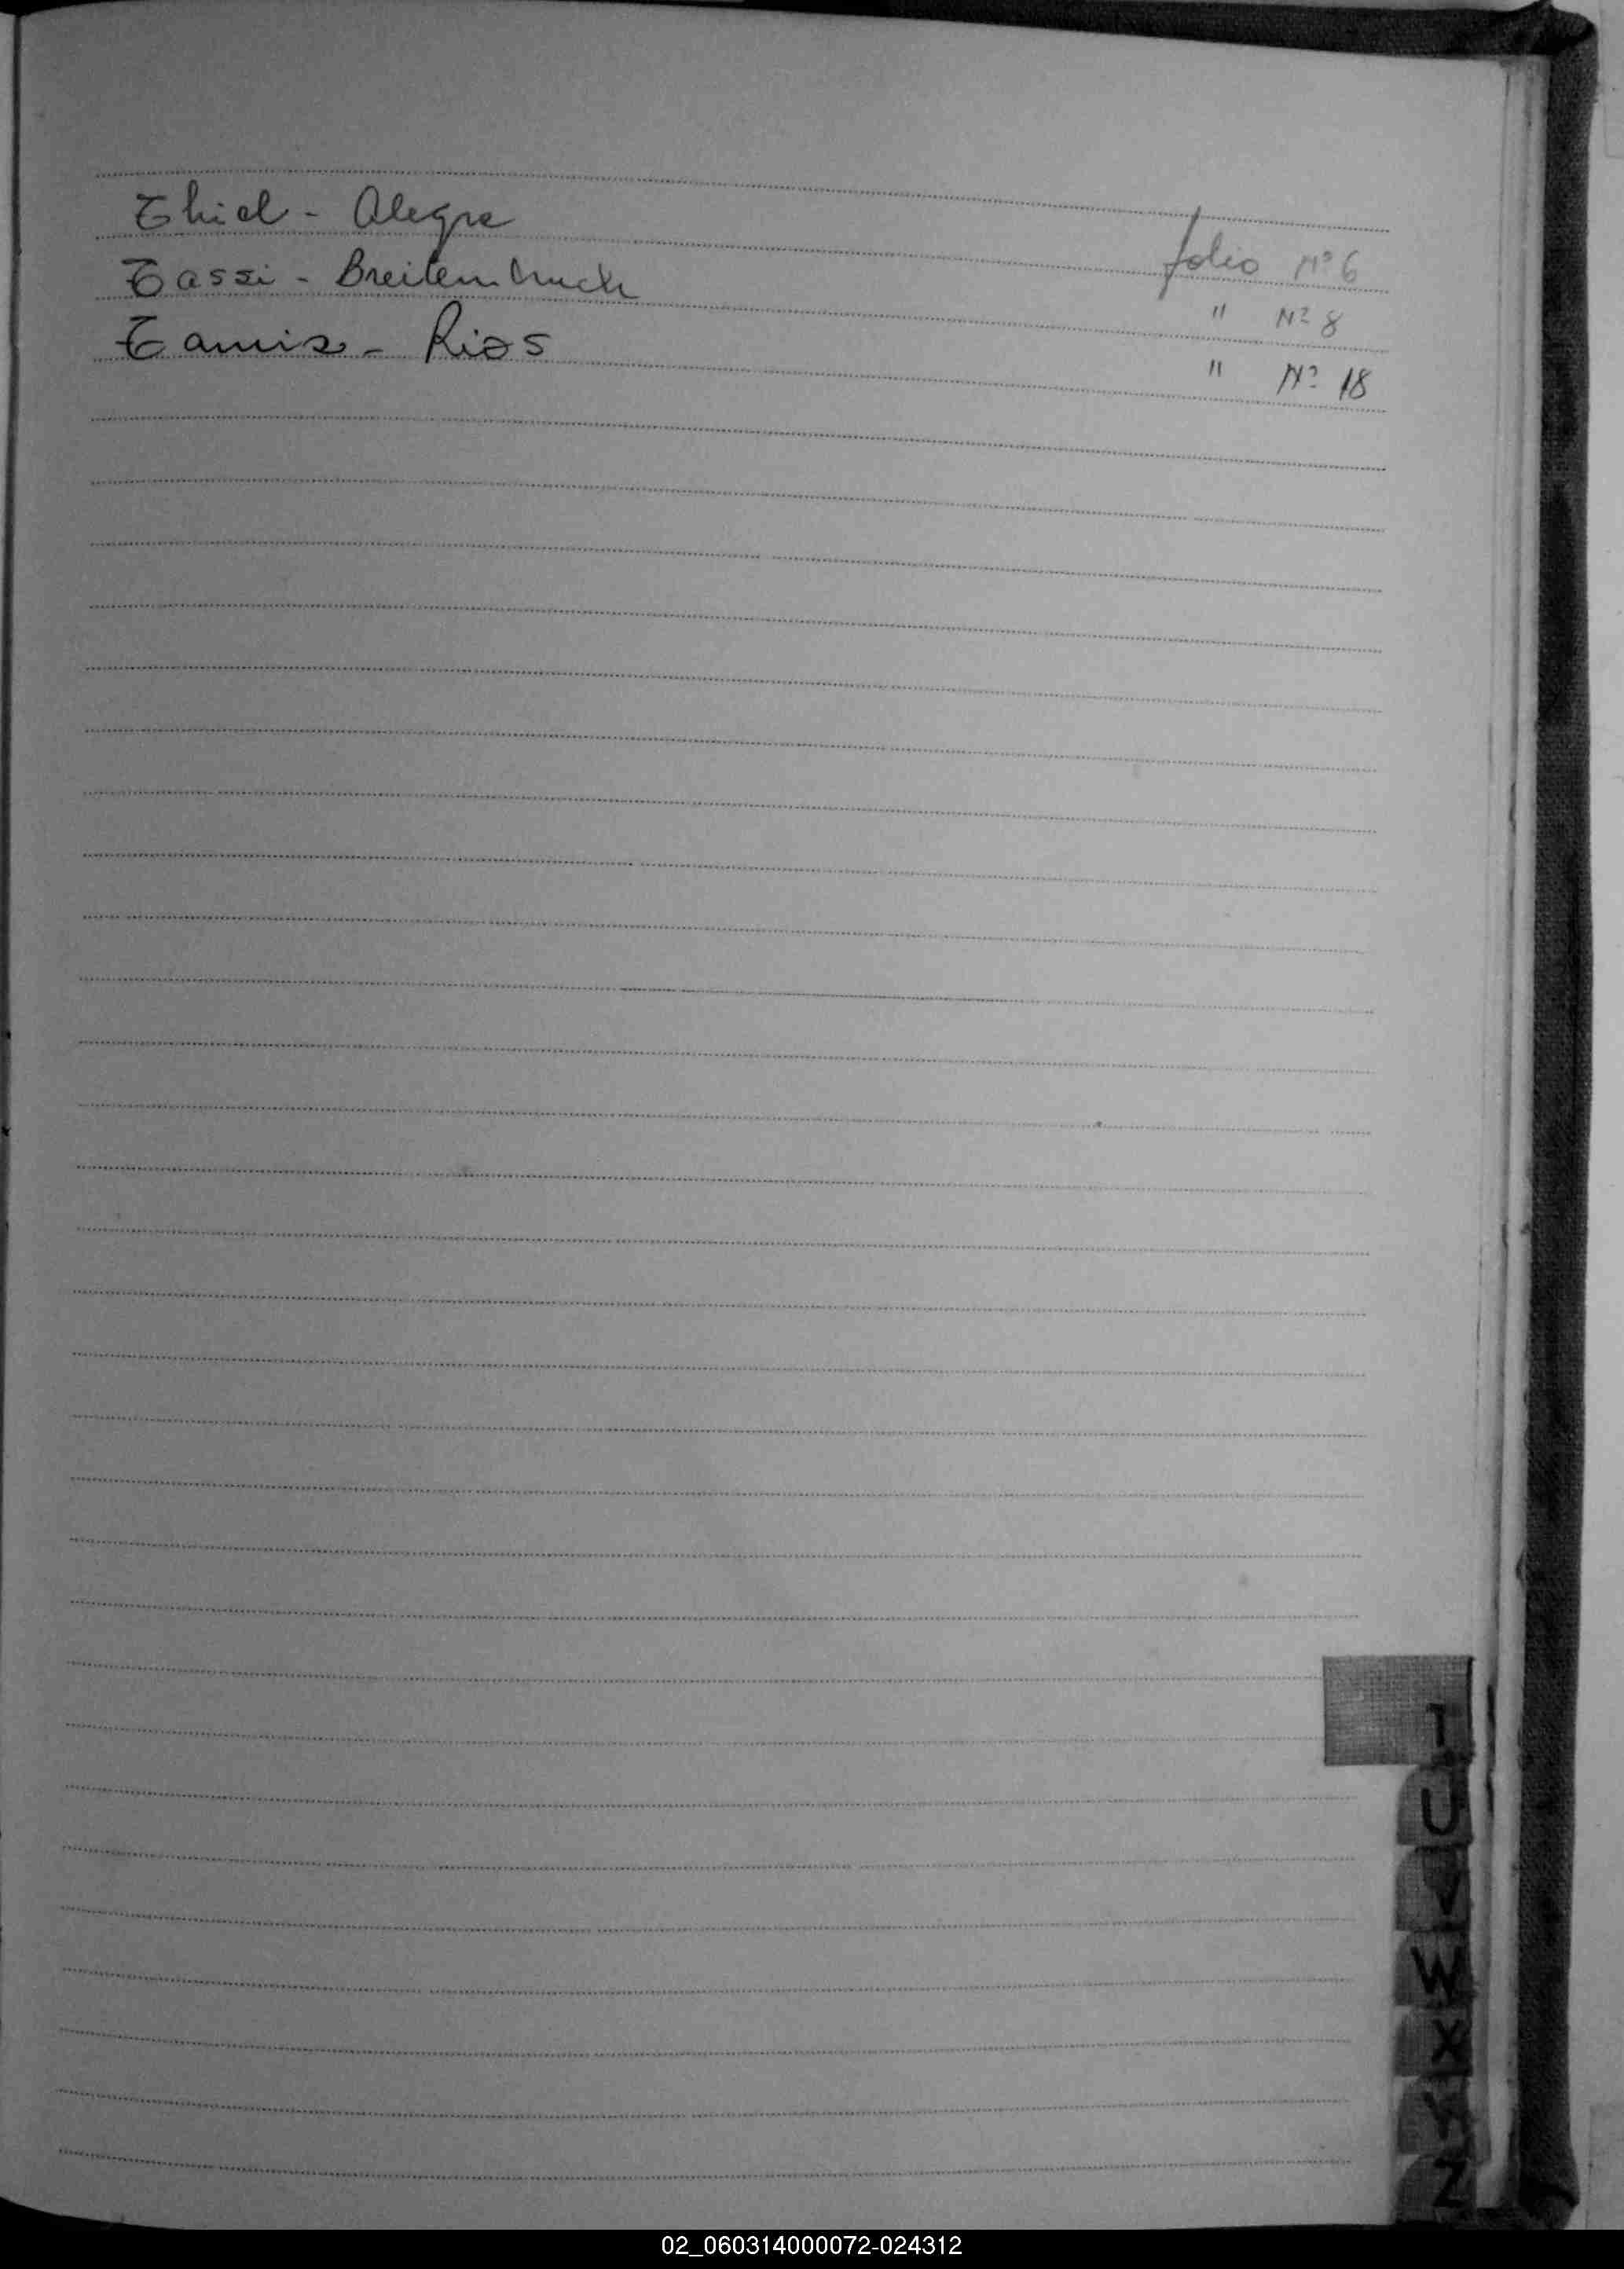 Thiel - Alegre folio Nº 6
Tassi - Breitembruch " Nº 8
Tamis - Rios " Nº 18
T
U
V
W
X
Y
Z
02_060314000072-024312